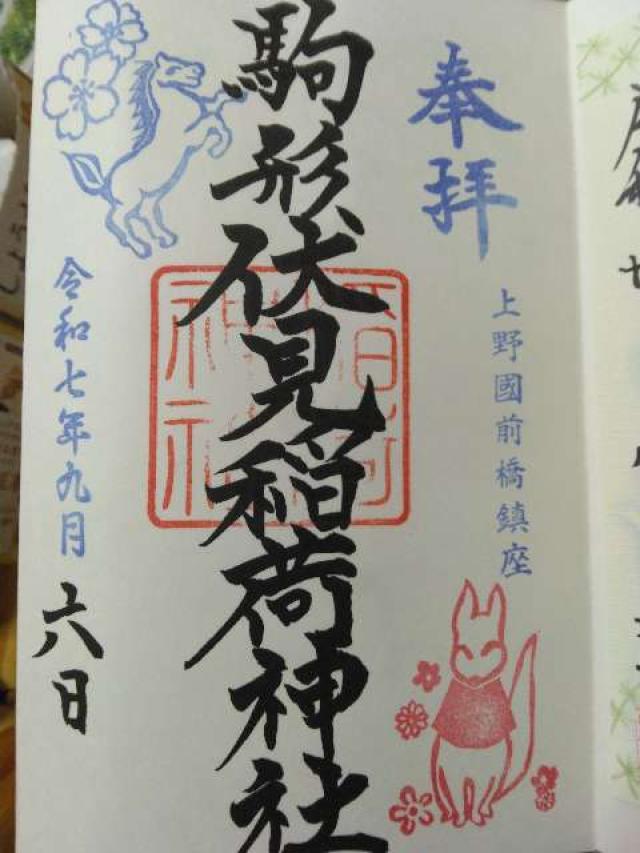 奉拝
上野國前橋鎮座
駒形伏見稲荷神社
令和七年九月六日